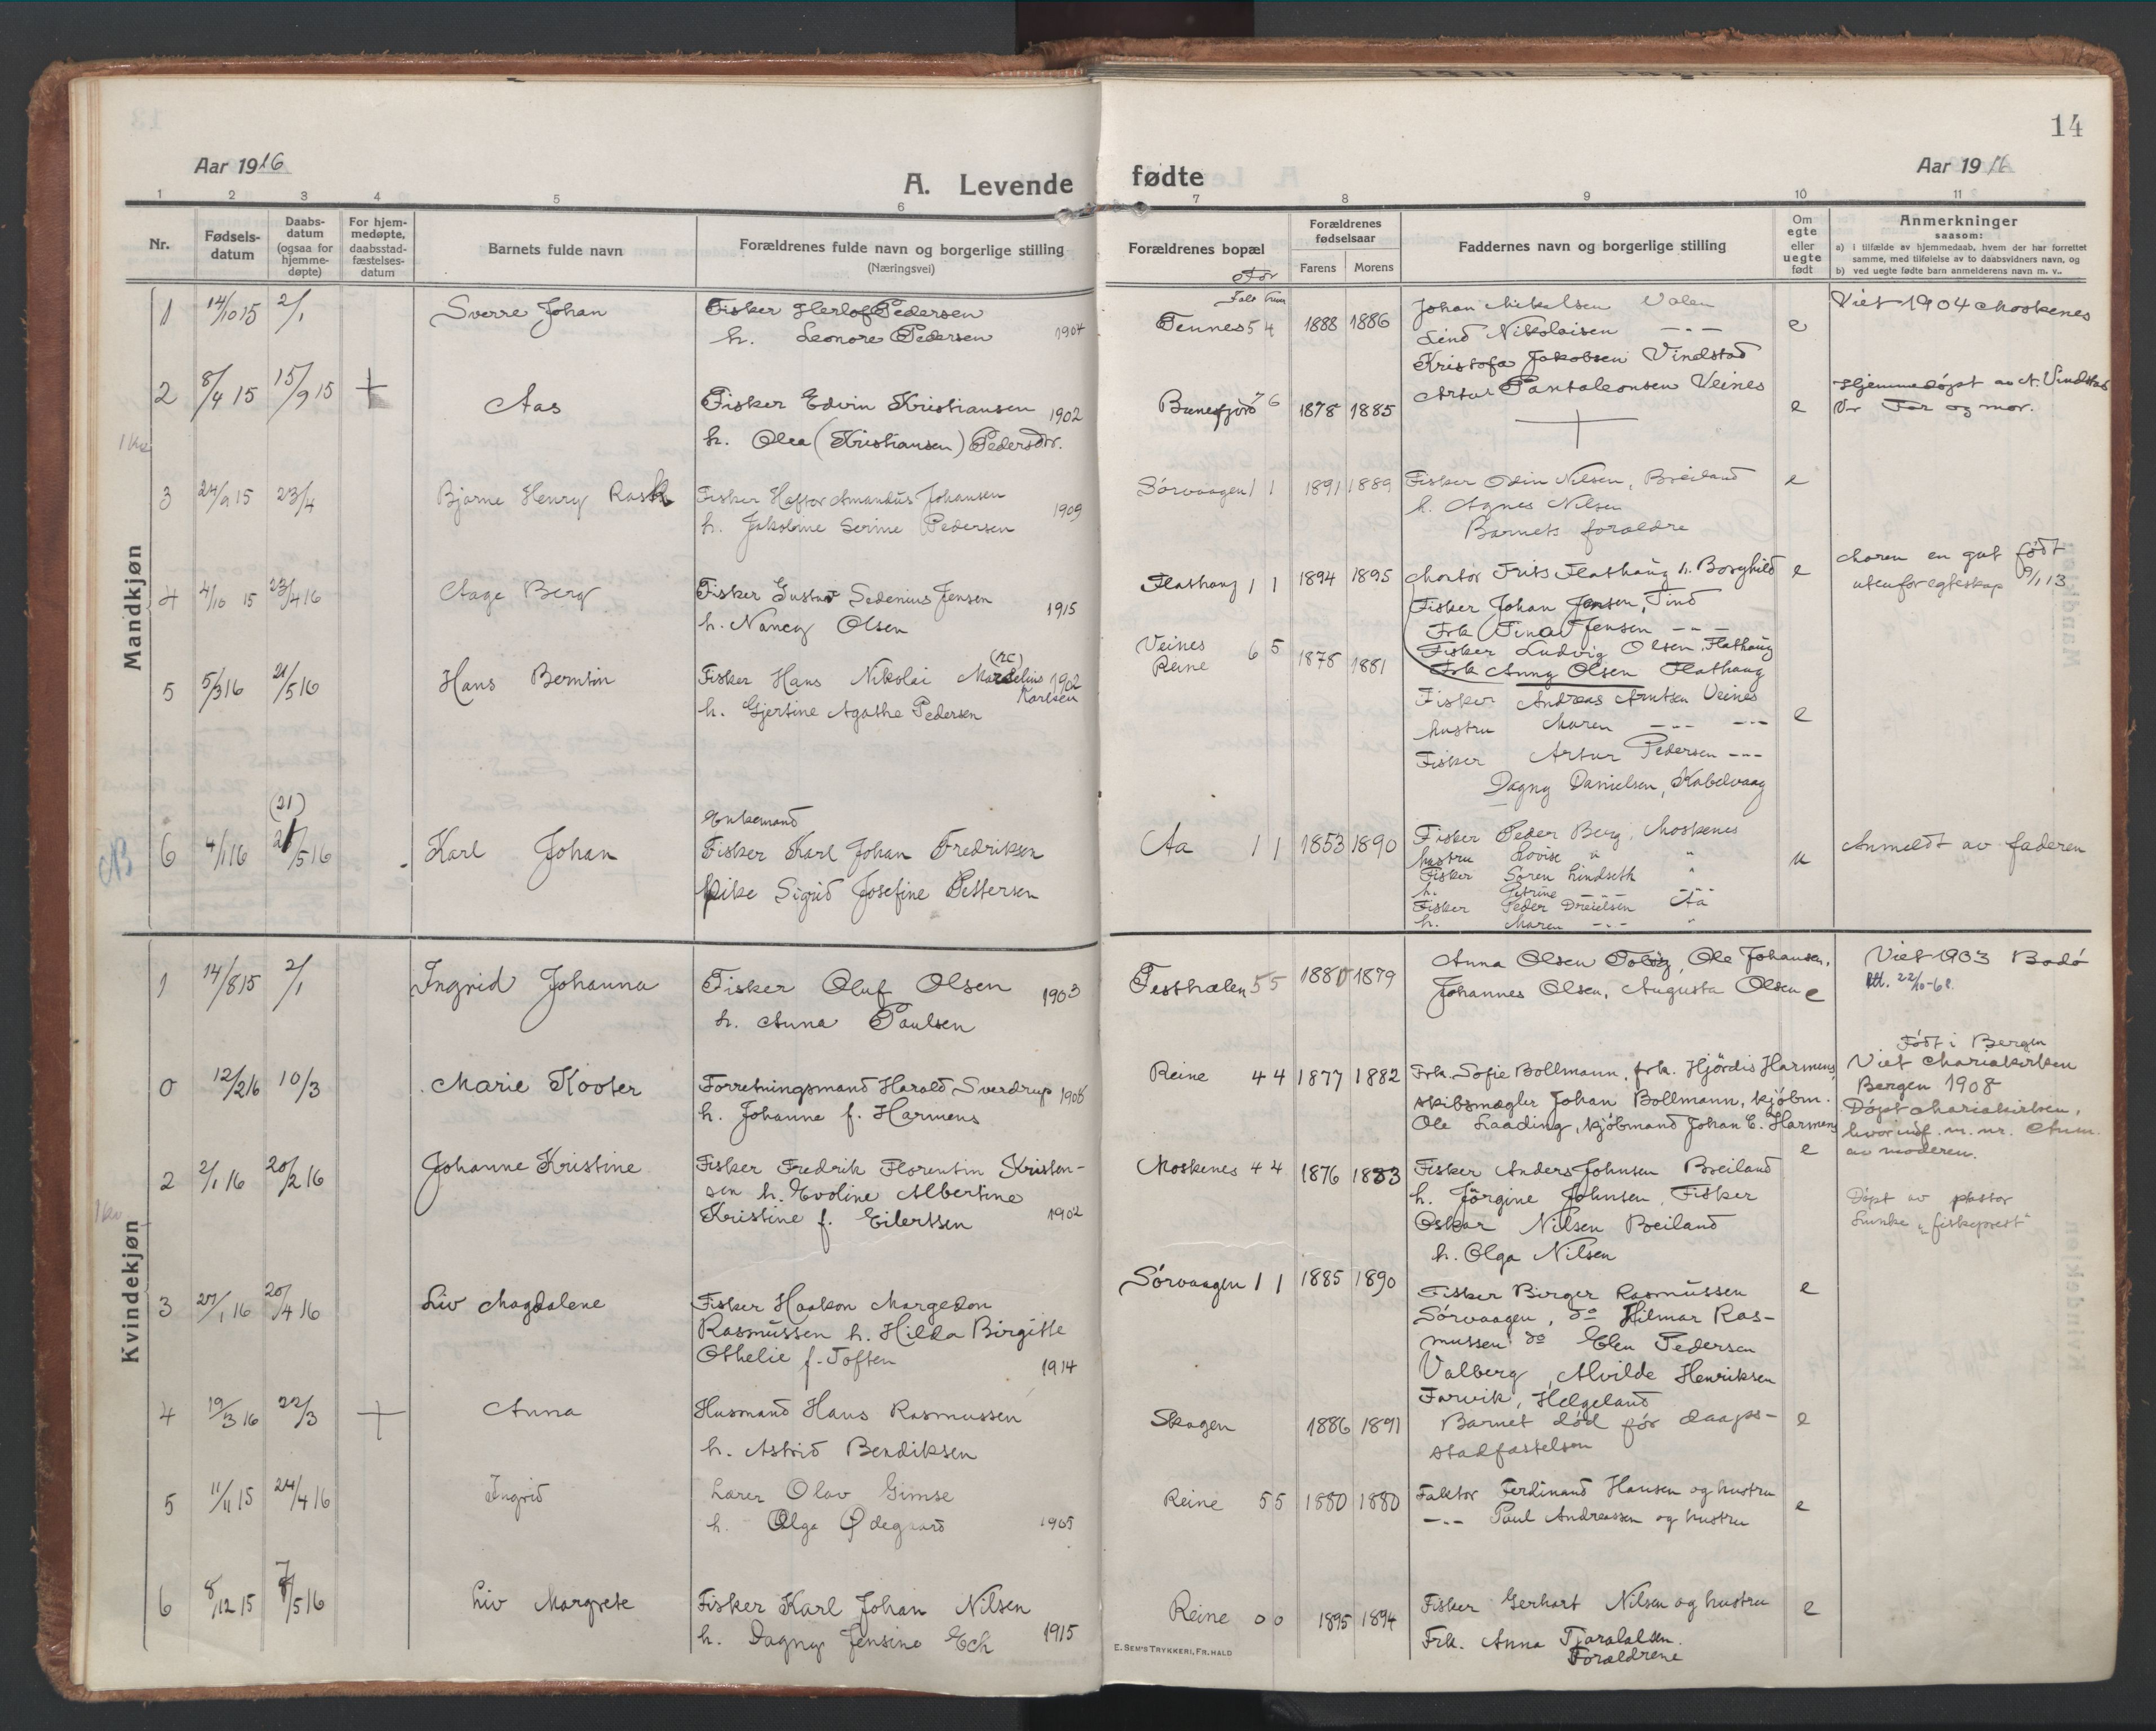 14
Aar 1916
Aar 1916
A. Levende fødte
1 2 3 4 5 6 7 8 9 10 11
Nr.
Fødsels-
datum
Daabs-
datum
(ogsaa for
hjemme-
døpte)
For hjem-
medøpte,
daabsstad-
fæstelses-
datum
Barnets fulde navn
Forældrenes fulde navn og borgerlige stilling
(Næringsvei)
Forældrenes bopæl
Forældrenes
fødselsaar
Farens Morens
Faddernes navn og borgerlige stilling
Om
egte
eller
uegte
født
Anmerkninger
saasom:
a) i tilfælde av hjemmedaab, hvem der har forrettet
samme, med tilføielse av to daabsvidners navn, og
b) ved uegte fødte barn anmelderens navn m. v..
Mandkjøn
1 14/10 15 2/1 Sverre Johan
Fisker Herlof Pedersen
h. Leonore Pedersen 1904
Tennes 5 4 1888 1886
Johan Mikelsen Valen
Lind Nikolaisen -"-
Kristofa Jakobsen Vindstad
Artur Pantaleonsen Veines
e
Viet 1904 Moskenes
2 8/4 15 15/9 15 + Aas
Fisker Edvin Kristiansen 1902
h. Olea (Kristiansen) Pedersdtr.
Bunesfjord 7 6 1878 1885
e
Hjemmedøpt av N. Vindstad
Vr Far og mor.
3 24/9 15 23/4 Bjarne Henry Rask
Fisker Haftor Amandus Johansen
h. Jakobine Serine Pedersen 1909
Sørvaagen 1 1 1891 1889
Fisker Odin Nilsen, Breiland
h. Agnes Nilsen
Barnets forældre
e
4 4/10 15 23/4 16 Aage Berg
Fisker Gustav Sedenius Jensen
h. Nancy Olsen 1915
Flathaug 1 1 1894 1895
Frits Flathaug h. Borghild
Fisker Johan Jensen, Tind
Frk Tina Jensen -"-
Fisker Ludvig Olsen, Flathaug
Frk Anny Olsen Flathaug
e
Moren en gut født
utenfor egteskap 9/1 13
5 5/3 16 21/5 16 Hans Berntin
Fisker Hans Nikolai Marselius 1902
Karlsen
h. Gjertine Agathe Pedersen
Veines
Reine 6 5 1878 1881
Fisker Andreas Arntsen Veines
hustru Maren -"- -"-
Fisker Artur Pedersen -"-
Dagny Danielsen, Kabelvaag
e
6 4/1 16 (21) 21/5 16 Karl Johan
Enkemand
Fisker Karl Johan Fredriksen
Pike Sigrid Josefine Pettersen
Aa 1 1 1853 1890
Fisker Peder Berg, Moskenes
hustru Lovise " "
Fisker Søren Lindseth "
h. Petrine -"-
Fisker Peder Dreielsen Aa
h. Maren -"- "
u
Anmeldt av faderen
Kvindekjøn
1 14/8 15 2/1 Ingrid Johanna
Fisker Oluf Olsen 1903
h. Anna Paulsen
Festhælen 5 5 1880 1879
Anna Olsen Ole Johansen,
Johannes Olsen, Augusta Olsen
e
Viet 1903 Bodø
Att. 22/10-68.
0 12/2 16 10/3 Marie Kooter
Forretningsmand Harald Sverdrup 1908
h. Johanne f. Harmens
Reine 4 4 1877 1882
Frk. Sofie Bollmann, frk. Hjørdis Harmens,
skibsmægler Johan Bollmann, kjøbm.
Ole Laading, kjøbmand Johan C. Harmens
e
Født i Bergen
Viet Mariakirken
Bergen 1908
Døpt Mariakirken,
hvor indf. m. nr. Anm.
av moderen.
2 2/1 16 20/2 16 Johanne Kristine
Fisker Fredrik Florentin Kristen-
sen h. Evoline Albertine
Kristine f. Eilertsen 1902
Moskenes 4 4 1876 1883
Fisker Anders Johnsen Breiland
h. Jørgine Johnsen, Fisker
Oskar Nilsen Breiland
h. Olga Nilsen
Døpt av pastor
Lunke "fiskeprest"
3 27/1 16 20/4 16 Liv Magdalene
Fisker Haakon Margedon
Rasmussen h. Hilda Birgitte
Othelie f. Toften 1914
Sørvaagen 1 1 1885 1890
Fisker Birger Rasmussen
Sørvaagen, do Hilmar Ras-
mussen do Elen Pedersen
Valberg, Alvilde Henriksen
Farvik, Helgeland
e
4 19/3 16 22/3 + Anna
Husmand Hans Rasmussen
h. Astrid Bendiksen
Skagen 1886 1891
Barnet død før daaps-
stadfæstelsen
e
5 11/11 15 24/4 16 Ingrid
Lærer Olav Gimse
h. Olga Ødegaard 1905
Reine 5 5 1880 1880
Faktor Ferdinand Hansen og hustru
-"- Paul Andreassen og hustru
e
6 8/12 15 7/5 16 Liv Margrete
Fisker Karl Johan Nilsen
h. Dagny Jensine Eck 1915
Reine 0 0 1895 1894
Fisker Gerhart Nilsen og hustru
Frk. Anna
Forældrene
e
E. SEM'S TRYKKERI, FR. HALD